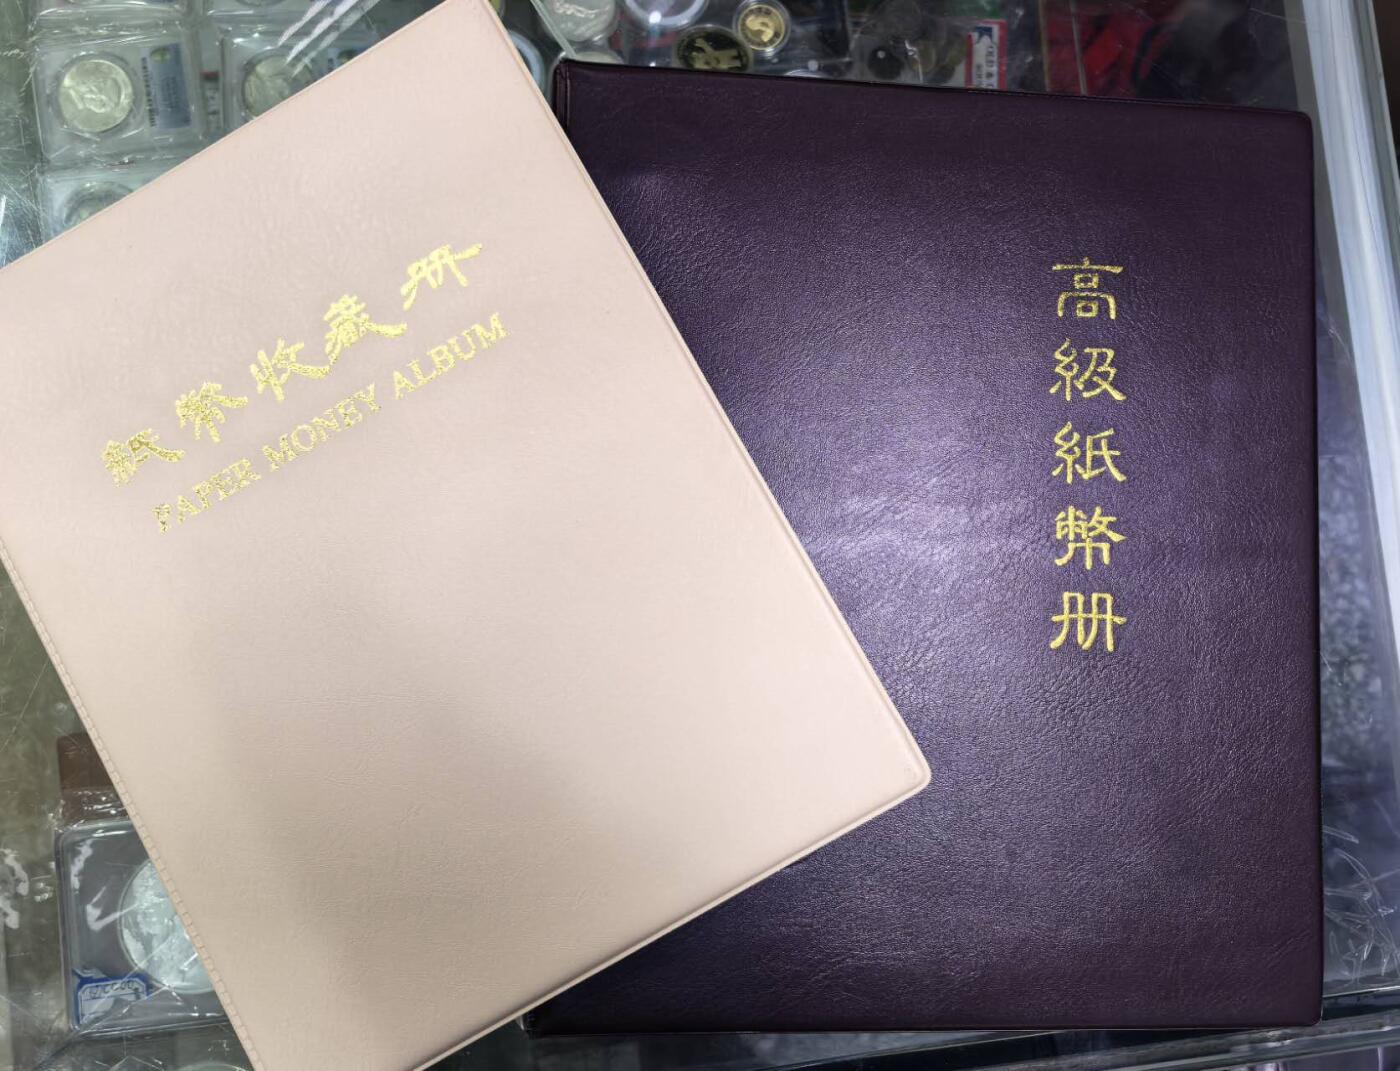 紙幣收藏册
PAPER MONEY ALBUM
高級紙幣册